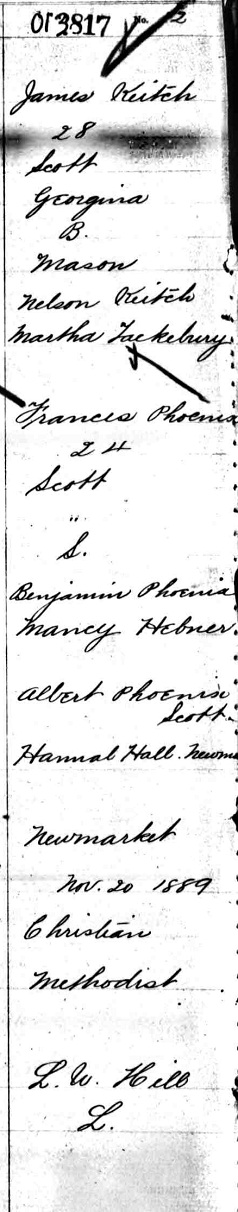 013817 No. 2
James Keitch
28
Scott
Georgina
B.
Mason
Nelson Keitch
Martha Lackebury
Frances Phoenix
24
Scott
"
S.
Benjamin Phoenix
Nancy Hebner
Albert Phoenix
Scott.
Hannah Hall. Newm
Newmarket
Nov. 20 1889
Christian
Methodist
L. W. Hill
L.